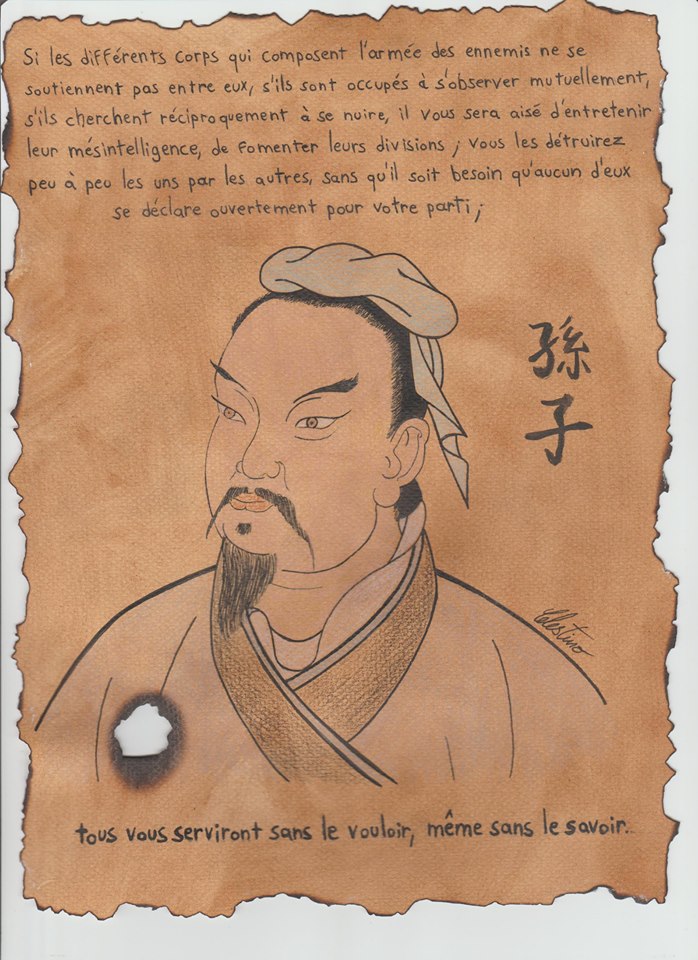 Si les différents corps qui composent l'armée des ennemis ne se
soutiennent pas entre eux, s'ils sont occupés à s'observer mutuellement,
s'ils cherchent réciproquement à se nuire, il vous sera aisé d'entretenir
leur mésintelligence, de fomenter leurs divisions ; vous les détruirez
peu à peu les uns par les autres, sans qu'il soit besoin qu'aucun d'eux
se déclare ouvertement pour votre parti ;
孫
子
Celestino
tous vous serviront sans le vouloir, même sans le savoir..